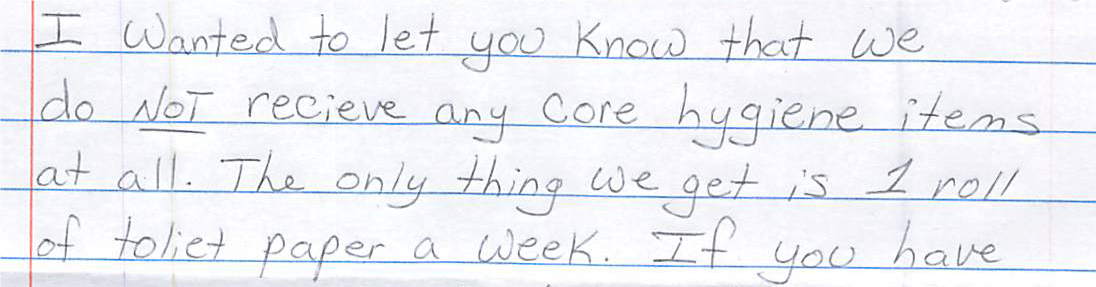 I Wanted to let you Know that we
do NOT recieve any core hygiene items
at all. The only thing we get is 1 roll
of toliet paper a week. If you have